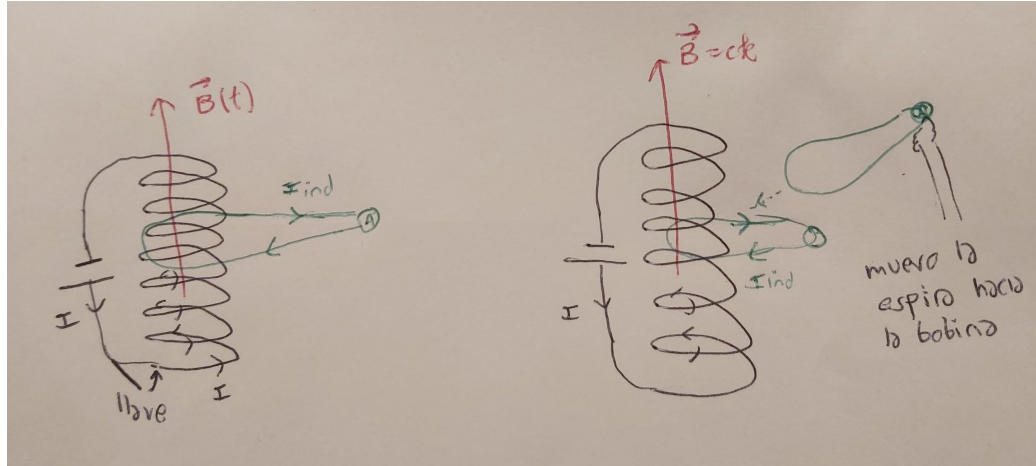 B(t)
I ind
A
I
llave
I
B = ctte
I ind
I
muevo la
espira hacia
la bobina